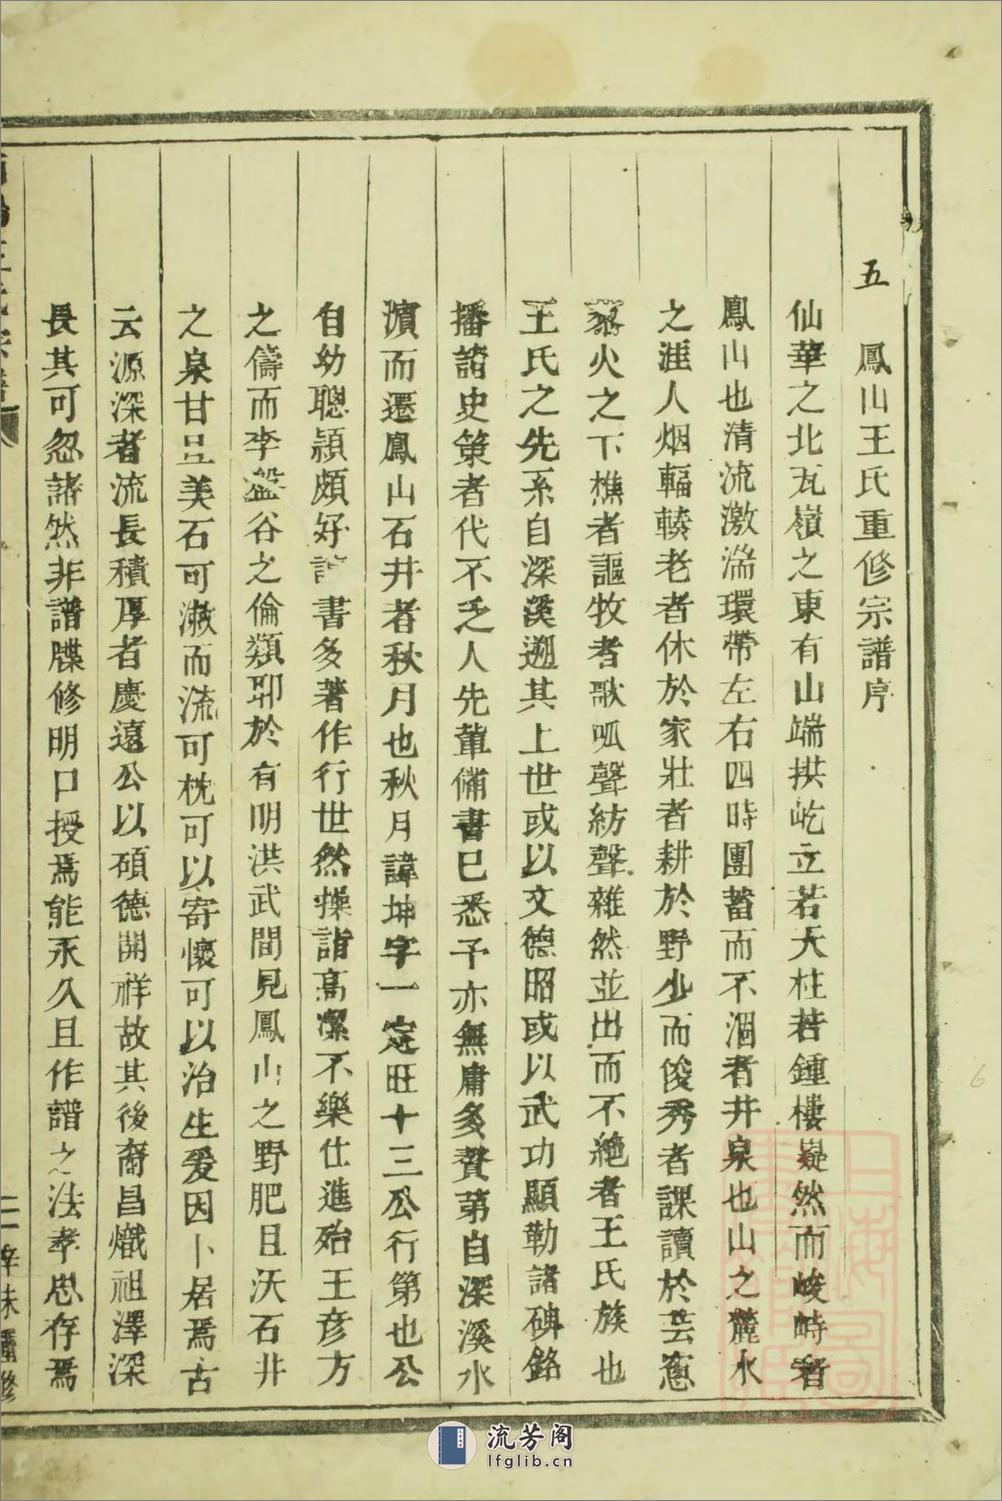 五
鳳山王氏重修宗譜序
仙華之北瓦嶺之東有山端拱屹立若天柱若鍾樓嶷然而峻峙者
鳳山也清流激湍環帶左右四時團蓄而不涸者井泉也山之麓水
之涯人烟輻輳老者休於家壯者耕於野少而俊秀者課讀於芸窻
火之下樵者謳牧者歌呱聲紡聲雜然並出而不絶者王氏族也
王氏之先系自深溪遡其上世或以文德昭或以武功顯勒諸碑銘
播諸史策者代不乏人先軰備書已悉予亦無庸多贅第自深溪水
濵而遷鳳山石井者秋月也秋月諱坤字一定旺十三公行第也公
自幼聰頴頗好書多著作行世然操詣高潔不樂仕進殆王彦方
之儔而李盤谷之倫類耶於有明洪武間見鳳山之野肥且沃石井
之泉甘且美石可漱而流可枕可以寄懷可以治生爰因卜居焉古
云源深者流長積厚者慶遠公以碩德開祥故其後裔昌熾祖澤深
長其可忽諸然非譜牒修明口授焉能永久且作譜之法孝思存焉
王氏宗譜
二
辛未重修
6
流芳阁
lfglib.cn